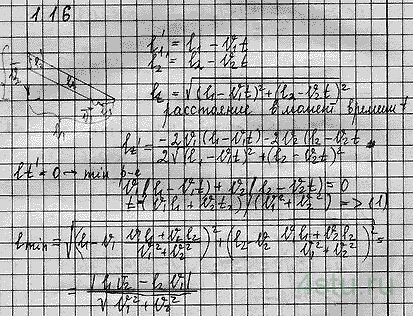 1.16
l₁' = l₁ - v₁t
l₂' = l₂ - v₂t
lt = √((l₁-v₁t)² + (l₂-v₂t)²
расстояние в момент времени t
lt' = -2v₁(l₁-v₁t) - 2v₂(l₂-v₂t / 2√(l₁-v₁t)² + (l₂-v₂t)²
lt' = 0 → min р-е
v₁(l₁-v₁t) + v₂(l₂-v₂t) = 0
t = (v₁l₁ + v₂l₂)/(v₁² + v₂²) => (1)
lmin = √(l₁ - v₁ (v₁l₁+v₂l₂)/(v₁²+v₂²))² + (l₂ - v₂ (v₁l₁+v₂l₂)/(v₁²+v₂²))² =
= |l₁v₂ - l₂v₁| / √v₁² + v₂²
4stu.ru